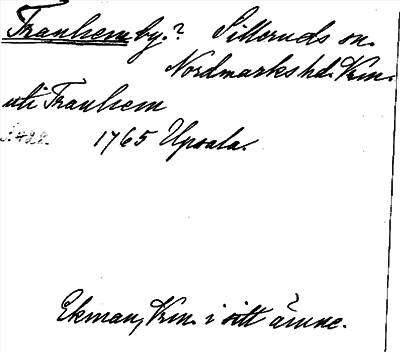 Tranhem by.? Silleruds sn.
Nordmarks hd. Vrm.
uti Tranhem
1765 Upsala.
Ekman, Vrm. i sitt ämne.